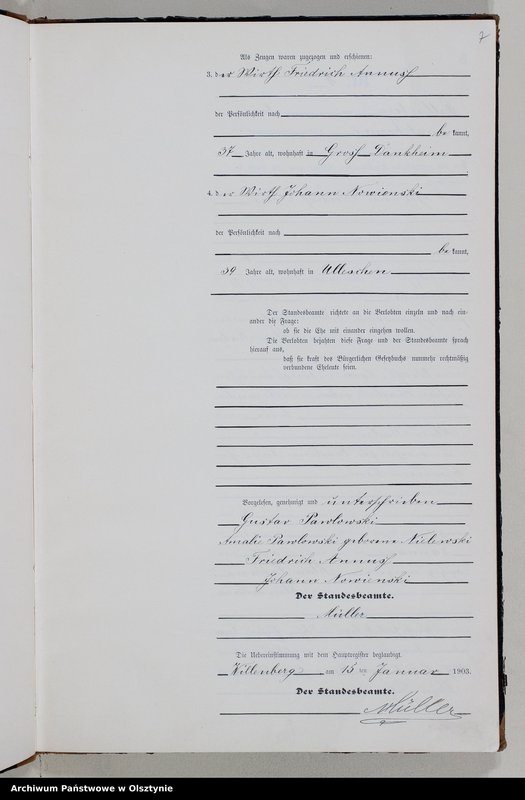 7
Als Zeugen waren zugezogen und erschienen:
3. der Wirth Friedrich Annuss
der Persönlichkeit nach
be kannt,
37 Jahre alt, wohnhaft in Gross Dankheim
4. der Wirth Johann Nowienski
der Persönlichkeit nach
be kannt,
39 Jahre alt, wohnhaft in Ulleschen
Der Standesbeamte richtete an die Verlobten einzeln und nach ein-
ander die Frage:
ob sie die Ehe mit einander eingehen wollen.
Die Verlobten bejahten diese Frage und der Standesbeamte sprach
hierauf aus,
daß sie kraft des Bürgerlichen Gesetzbuchs nunmehr rechtmäßig
verbundene Eheleute seien.
Vorgelesen, genehmigt und unterschrieben
Gustav Pawlowski
Amalie Pawlowski geborene
Friedrich Annuss
Johann Nowienski
Der Standesbeamte.
Müller
Die Uebereinstimmung mit dem Hauptregister beglaubigt.
Willenberg am 15 ten Januar 1903.
Der Standesbeamte.
Müller
Archiwum Państwowe w Olsztynie